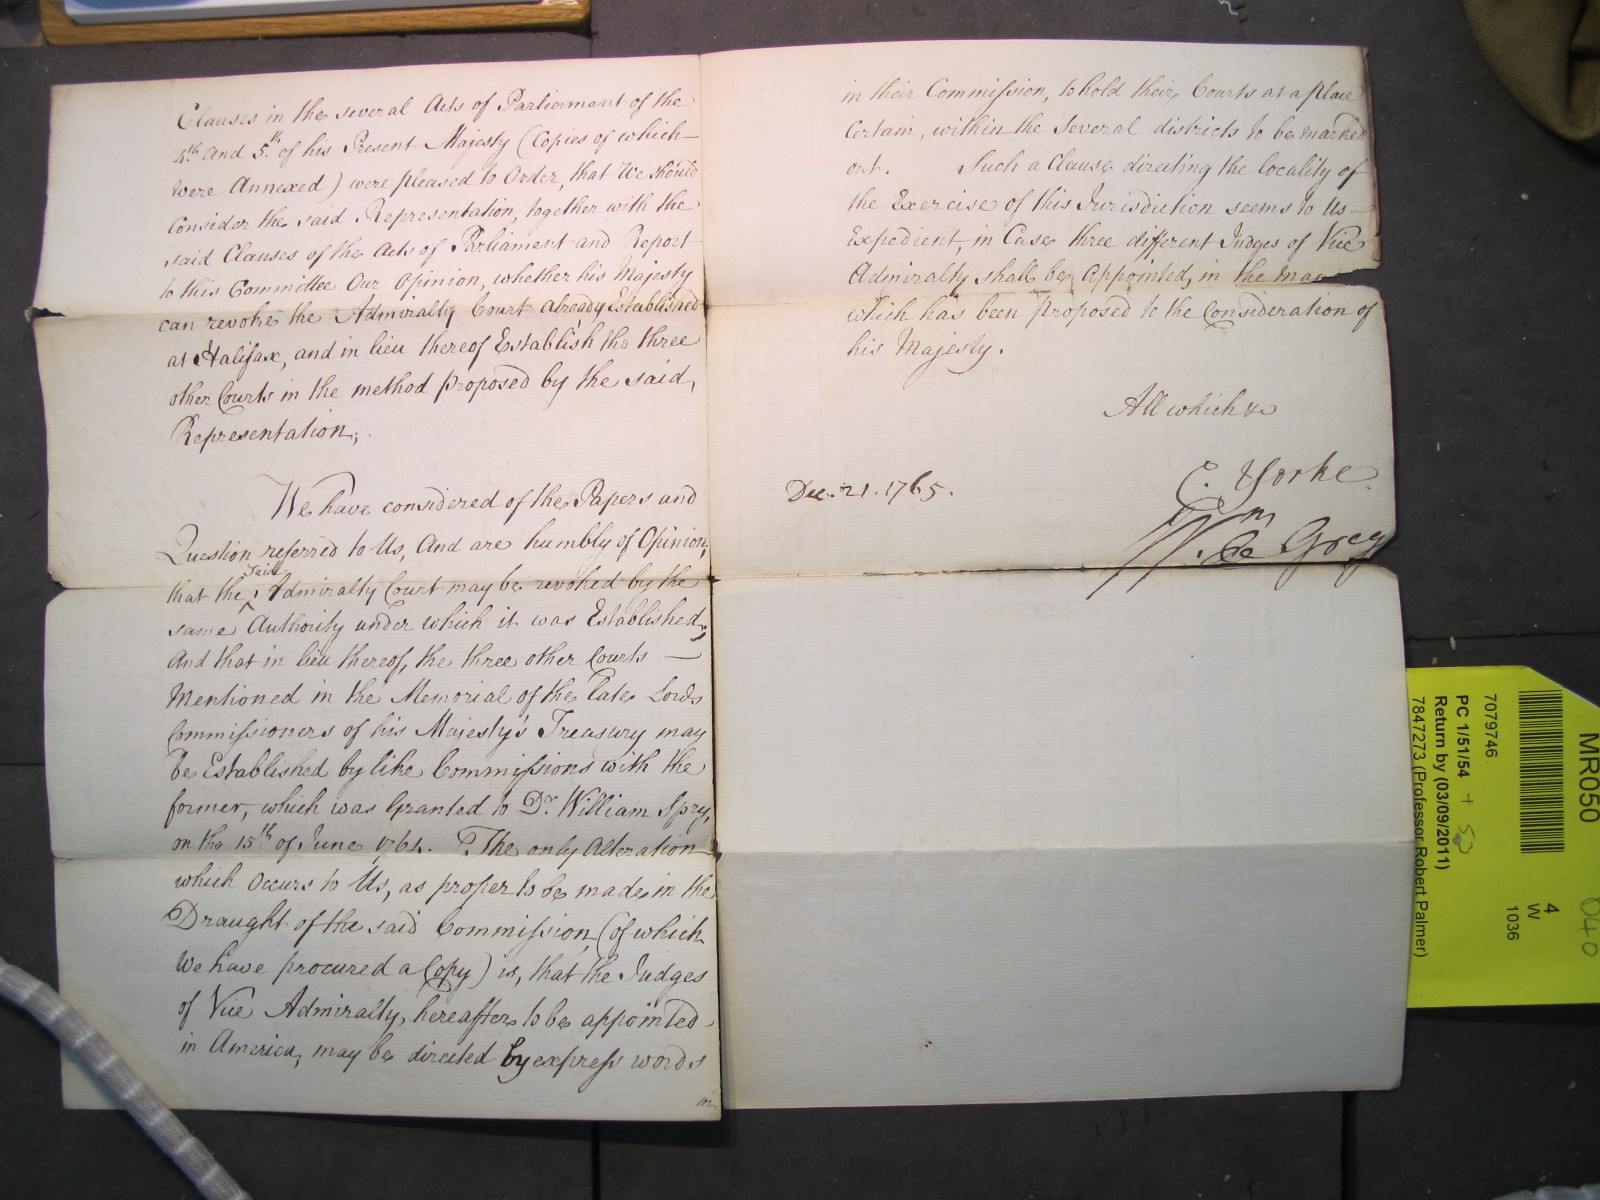 Clauses in the several Acts of Parliament of the
4th and 5th of his Present Majesty (Copies of which
were Annexed) were pleased to Order, that We should
Consider the said Representation, together with the
said Clauses of the Acts of Parliament and Report
to this Committee Our Opinion, whether his Majesty
can revoke the Admiralty Court already Established
at Halifax, and in lieu thereof Establish the three
other Courts in the method proposed by the said,
Representation;.
We have considered of the Papers and
Question referred to Us, And are humbly of Opinion,
that the said Admiralty Court may be revoked by the
same Authority under which it was Established,
And that in lieu thereof, the three other Courts
Mentioned in the Memorial of the Late Lords
Commissioners of his Majesty's Treasury may
be Established by like Commissions with the
former, which was Granted to Dr. William Spry,
on the 15th of June 1764. The only Alteration
which Occurs to Us, as proper to be made in the
Draught of the said Commission, (of which
We have procured a Copy) is, that the Judges
of Vice Admiralty, hereafter to be appointed
in America, may be directed by express words
in
in their Commission, to hold their Courts at a place
Certain, within the Several districts to be marked
out. Such a Clause directing the locality of
the Exercise of this Jurisdiction seems to Us
Expedient, in Case three different Judges of Vice
Admiralty shall be appointed, in the
which has been proposed to the Consideration of
his Majesty.
All which &c
Dec. 21. 1765.
C. Yorke.
Wm De Grey
MR050
7079746
PC 1/51/54 + 53
Return by (03/09/2011)
7847273 (Professor Robert Palmer)
4
W
1036
040